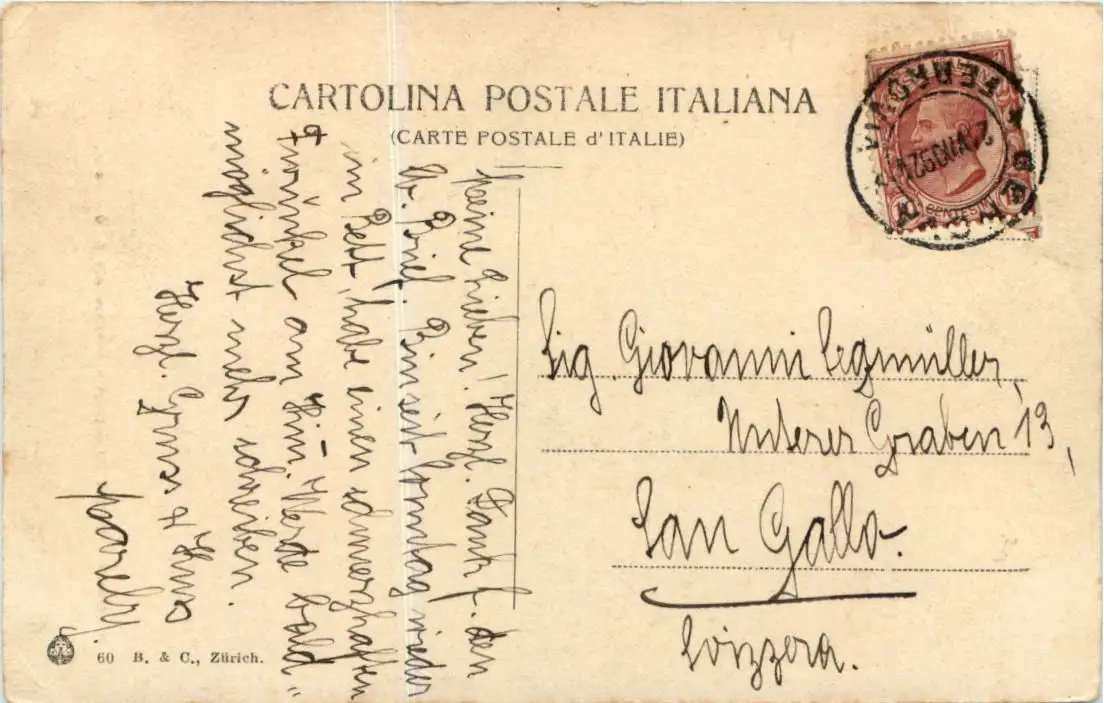 CARTOLINA POSTALE ITALIANA
(CARTE POSTALE d'ITALIE)
Meine Lieben! Herzl. Dank f. den
lb. Brief. Bin seit Sonntag wieder
im Bett, habe einen schmerzhaften
Furunkel am Kinn. Werde bald-
möglichst mehr schreiben.
Herzl. Gruss &
Sig. Giovanni
Unterer Graben 13,
San Gallo.
Svizzera.
CENTESIMI
GENOVA
60 B. & C., Zürich.